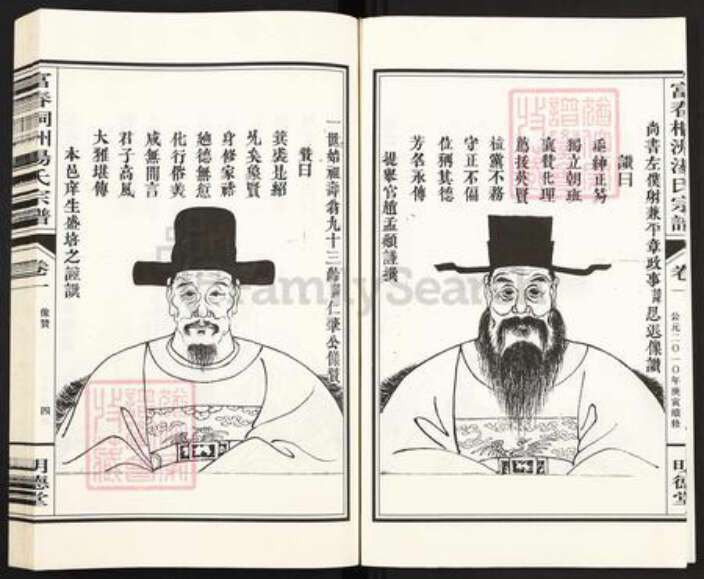 富春桐洲湯氏宗譜
卷一
公元二〇一〇年庚寅續修
明德堂
尚書左僕射兼平章政事 思退像讚
讚曰
垂紳正笏
獨立朝班
寅贊化理
薦拔英賢
植黨不務
守正不偏
位稱其德
芳名永傳
提舉官趙孟頫謹撰
一世始祖壽翁九十三齡 仁肇公像贊
贊曰
箕裘是紹
先矣桑賢
身修家禱
德無愆
化行俗美
咸無間言
君子高風
大雅堪傳
本邑庠生盛培之謹讚
富春桐洲湯氏宗譜
卷一
像贊
四
明德堂
FamilySearch